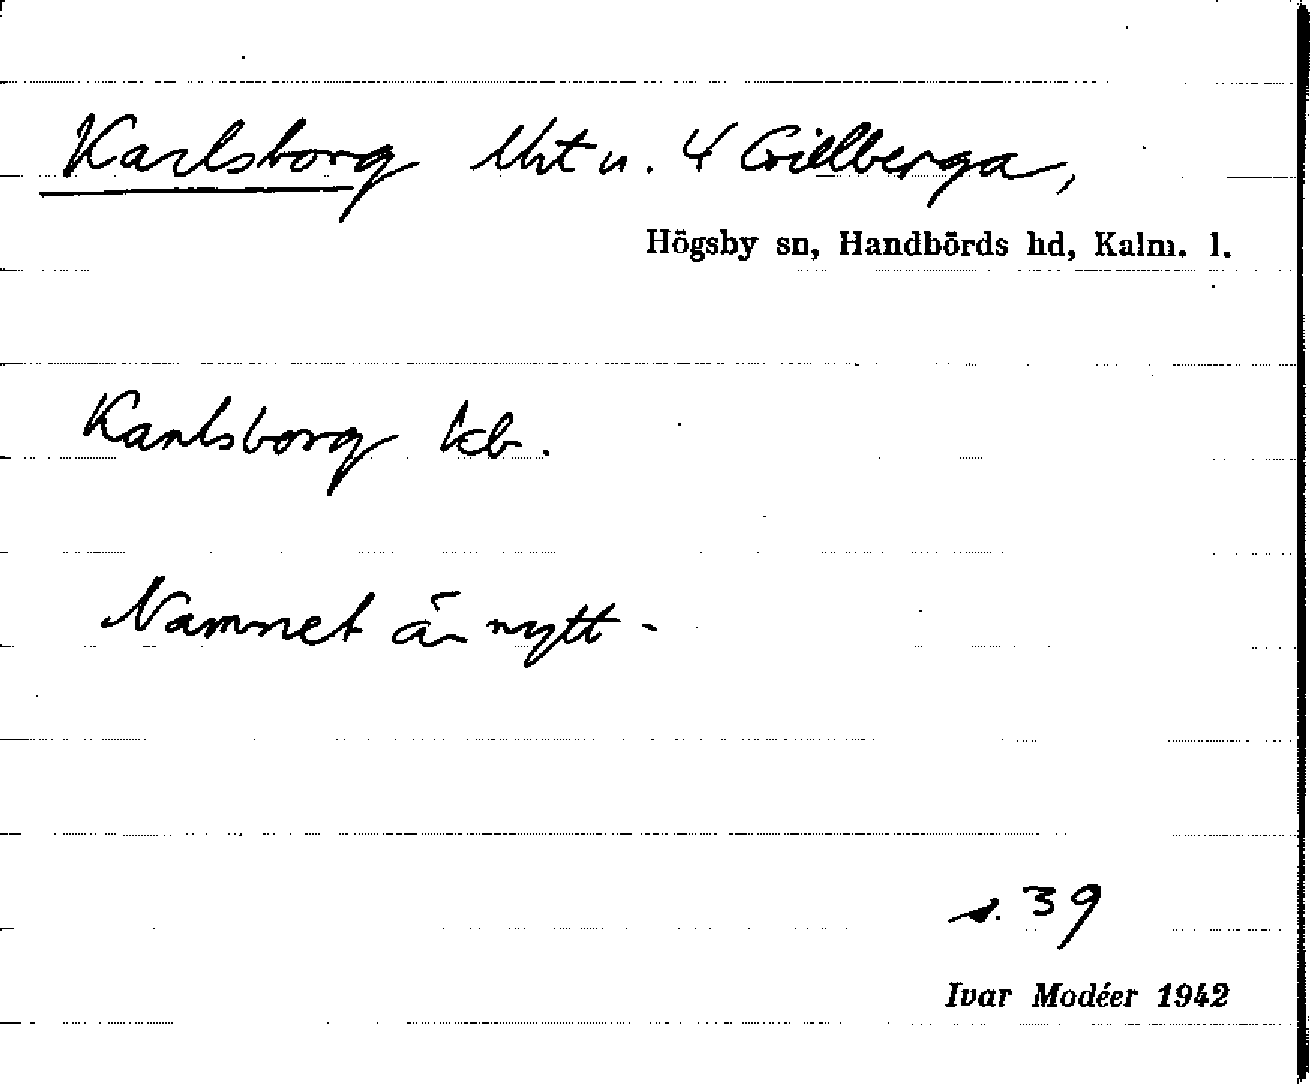 Karlsborg lht u. 4 Gillberga,
Högsby sn, Handbörds hd, Kalm. l.
Karlsborg kb.
Namnet är nytt -
s. 39
Ivar Modéer 1942